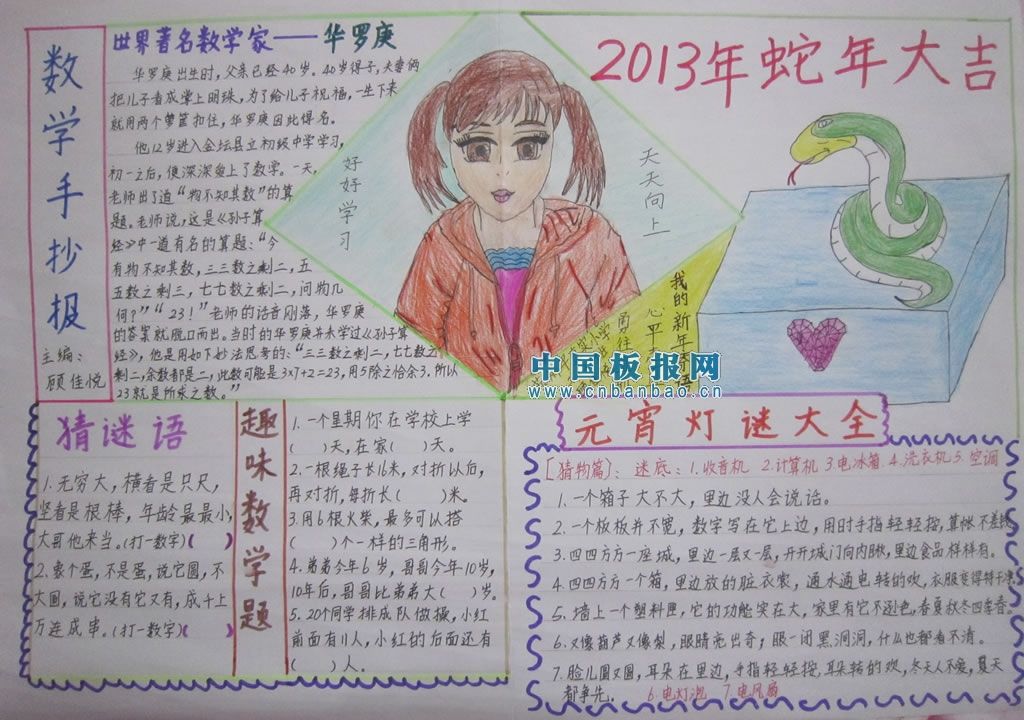 数学手抄报
主编：
顾佳悦
世界著名数学家——华罗庚
华罗庚出生时，父亲已经40岁。40岁得子，夫妻俩
把儿子看成掌上明珠，为了给儿子祝福，一生下来
就用两个箩筐扣住，华罗庚因此得名。
他12岁进入金坛县立初级中学学习，
初一之后，便深深爱上了数学。一天，
老师出了道“物不知其数”的算
题。老师说，这是《孙子算
经》中一道有名的算题：“今
有物不知其数，三三数之剩二，五
五数之剩三，七七数之剩二，问物几
何？”“23！”老师的话音刚落，华罗庚
的答案就脱口而出。当时的华罗庚并未学过《孙子算
经》，他是用如下妙法思考的：“三三数之剩二，七七数之
剩二，余数都是二，此数可能是3×7+2=23，用5除之恰余3，所以
23就是所求之数。”
好好学习
天天向上
我的新年
2013年蛇年大吉
中国板报网
www.cnbanbao.cn
猜谜语
1.无穷大，横看是只尺，
竖看是根棒，年龄最最小，
大哥他来当。(打一数字)( )
2.象个蛋，不是蛋，说它圆，不
大圆，说它没有它又有，成千上
万连成串。(打一数字)( )
趣味数学题
1.一个星期你在学校上学
( )天，在家( )天。
2.一根绳子长16米，对折以后，
再对折，每折长( )米。
3.用6根火柴，最多可以搭
( )个一样的三角形。
4.弟弟今年6岁，哥哥今年10岁，
10年后，哥哥比弟弟大( )岁。
5.20个同学排成队做操，小红
前面有11人，小红的后面还有
( )人。
元宵灯谜大全
[猜物篇]：谜底：1.收音机 2.计算机 3.电冰箱 4.洗衣机 5.空调
1.一个箱子大不大，里边没人会说话。
2.一个板板并不宽，数字写在它上边，用时手指轻轻按，算帐不差钱
3.四四方方一座城，里边一层又一层，开开城门向内瞅，里边食品样样有。
4.四四方方一个箱，里边放的脏衣裳，通水通电转的欢，衣服变得特干净
5.墙上一个塑料匣，它的功能实在大，家里有它不逊色，春夏秋冬四季春。
6.又像葫芦又像梨，眼睛亮出奇；眼一闭黑洞洞，什么也都看不清。
7.脸儿圆又圆，耳朵在里边，手指轻轻按，耳朵转的欢，冬天人不爱，夏天
都争先。 6.电灯泡 7.电风扇